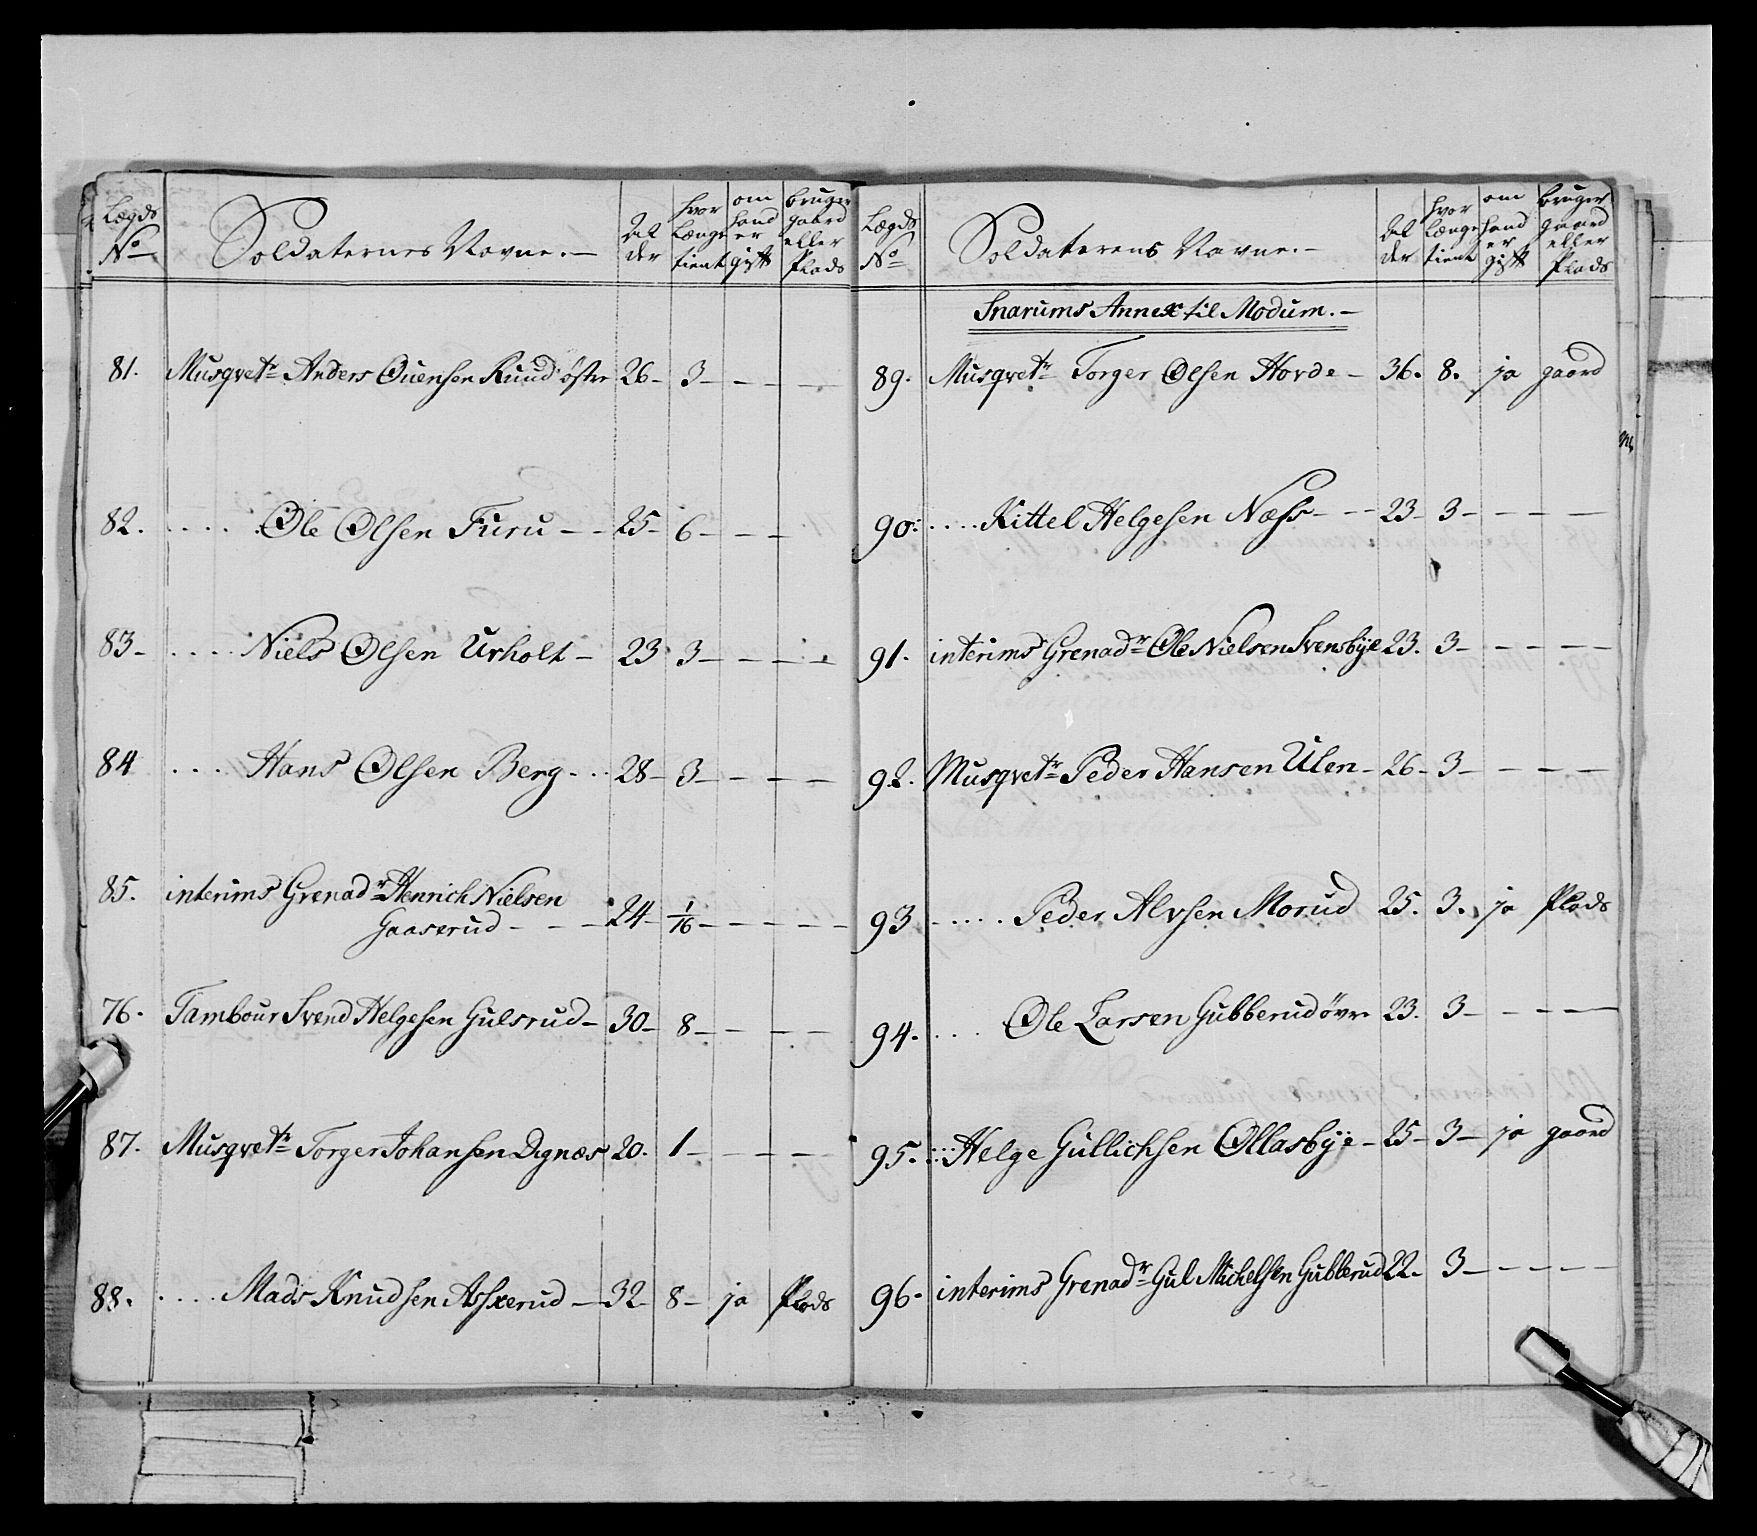 Lægds No Soldaternes Navne.— Al der hvor længe tient om hand er gift bruger gaard eller Plads
81. Musqvetr Anders Ouensen Ruud østre 26- 3- - -
82. .... Ole Olsen Furu - - 25- 6- - -
83- .... Niels Olsen Urholt - 23 3- - - -
84 .... Hans Olsen Berg - .. 28- 3- - - -
85. interims Grenadr Henrich Nielsen
Gaaserud - - - 24- 1/16 - - - -
76. Tambour Svend Helgesen Gulsrud - 30- 8- - - -
87. Musqvetr Torger Johansen Dignæs 20. 1- - - -
88. .... Mads Knudsen Asxerud - 32- 8- ja Plads
Lægds No Soldaterens Navne.- Al der hvor længe tient om hand er gift bruger gaard eller Plads
Snarums Annex til Modum.-
89. Musqvetr Torger Olsen Hovde - 36. 8. ja gaard
90. .... Kittel Helgesen Næss - - - 23- 3- - - -
91. interims Grenadr Ole Nielsen Svensbye 23. 3- - - -
92. Musqvetr Peder Hansen Ulen - 26- 3- - - -
93 ..... Peder Alvsen Morud 25. 3. ja Plads
94. .... Ole Larsen Gubberud øvre 23. 3- - - -
95. .... Helge Gullichsen Ollasbye - 25- 3- ja gaard
96. interims Grenadr Gul Michelsen Gubberud 22. 3- - - -